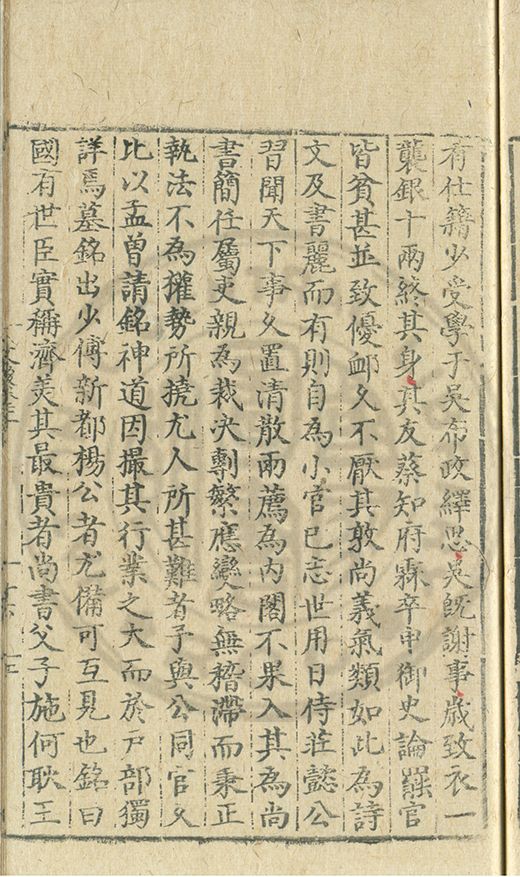 有仕籍少受學于吳布政繹思吳旣謝事歲致衣一
襲銀十兩終其身其友蔡知府霖卒申御史論謫官
皆貧甚並致優衈久不厭其敦尚義氣類如此為詩
文及書麗而有則自為小官已忘世用日侍莊懿公
習聞天下事久置清散兩薦為內閣不果入其為尚
書簡任屬吏親為裁决剸繁應變略無稽滯而秉正
執法不為權勢所撓尤人所甚難者予與公同官久
比以孟曽請銘神道因撮其行業之大而於戶部獨
詳焉墓銘出少傅新都楊公者尤備可互見也銘曰
國有世臣實稱濟美其最貴者尚書父子施何耿王